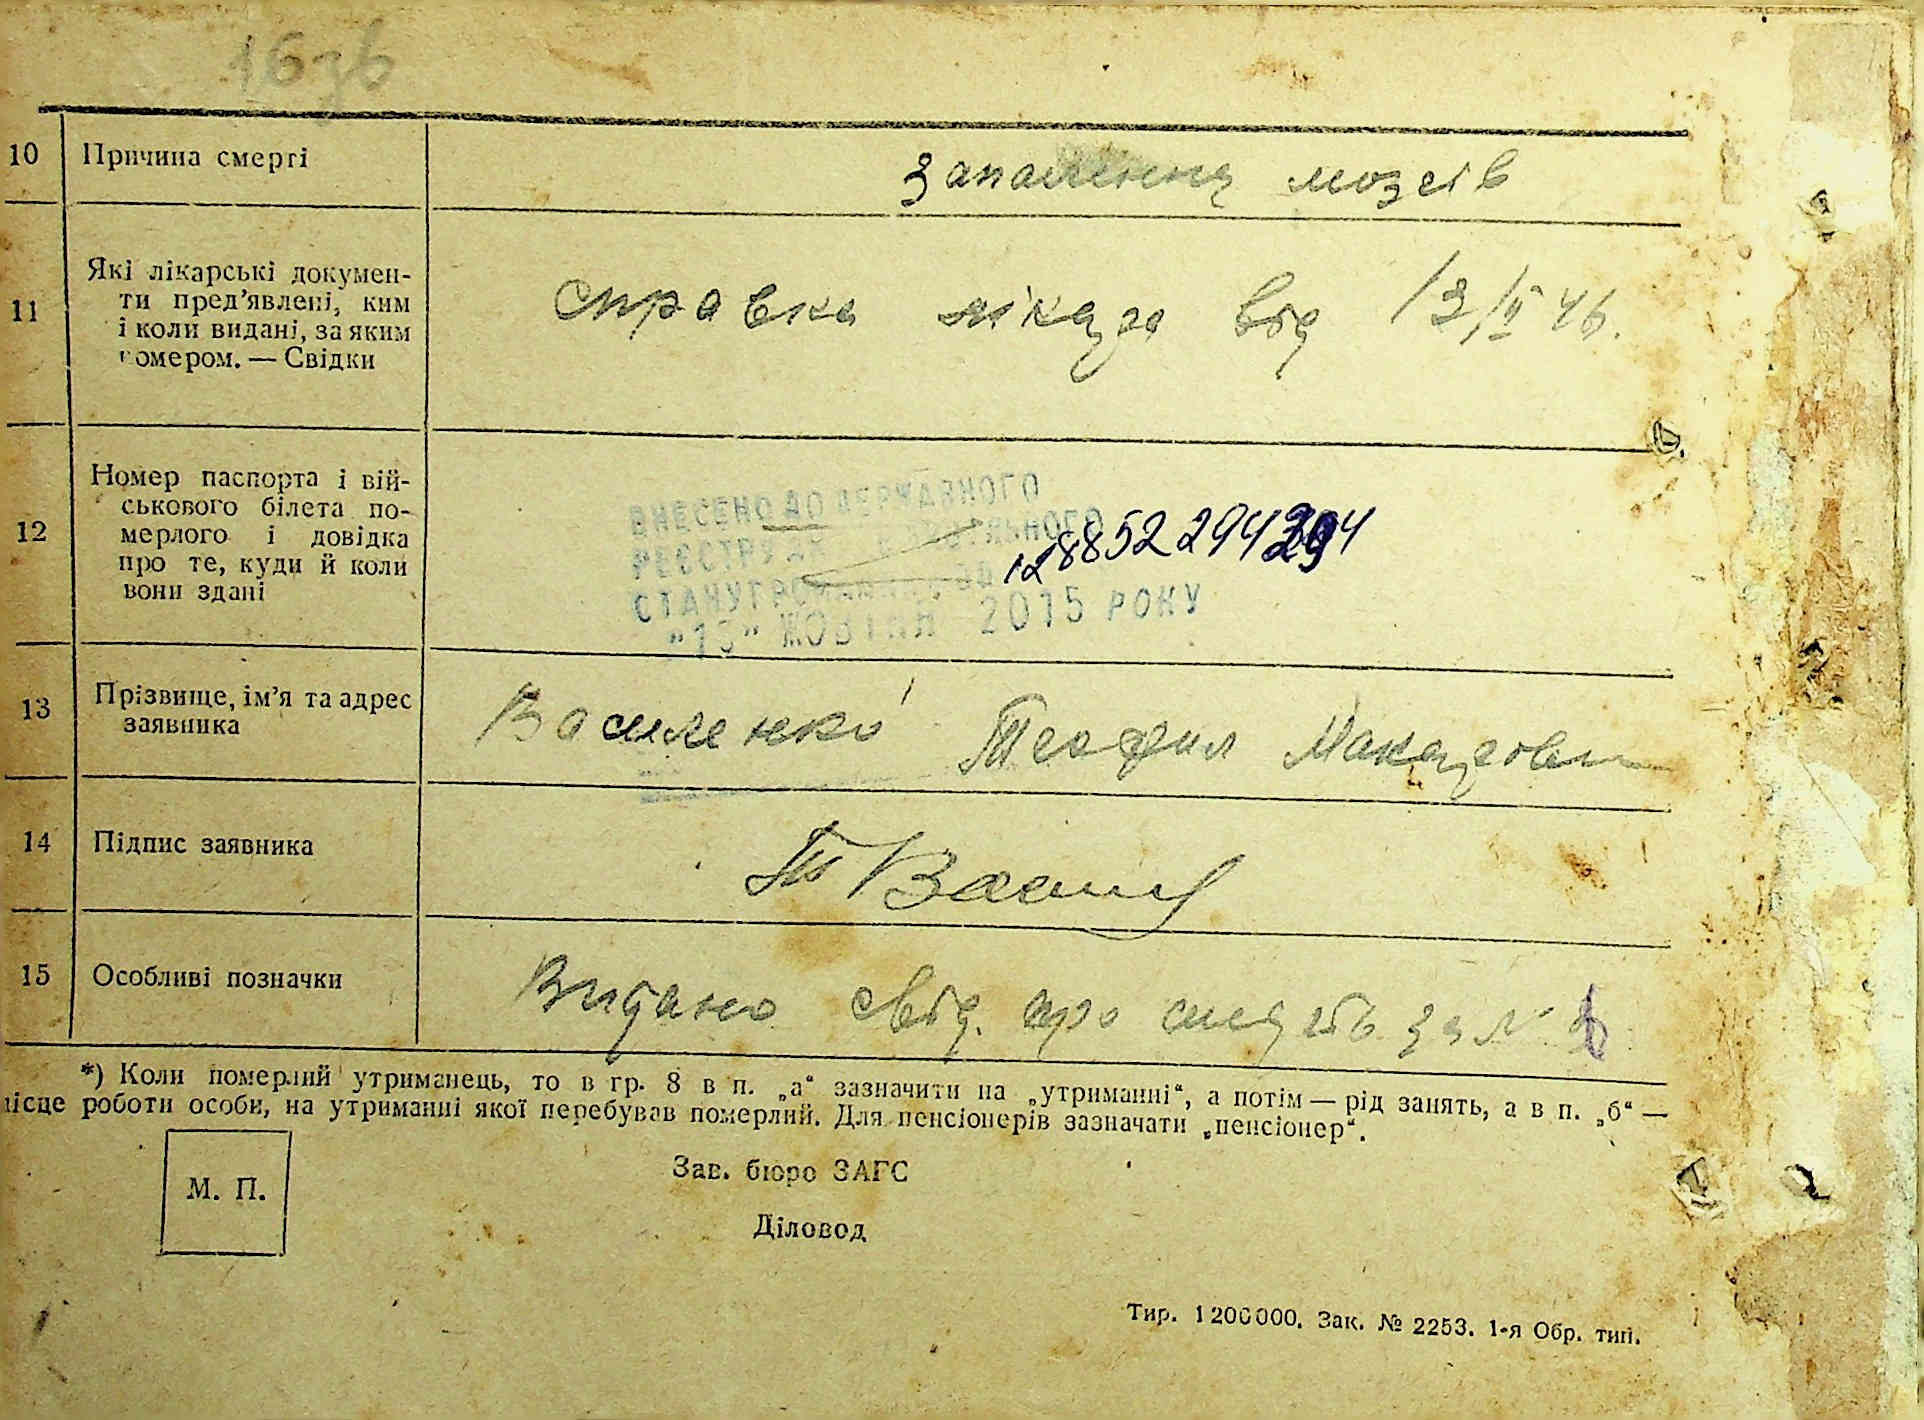 16зв
10 Причина смерті запалення мозгів
11 Які лікарські докумен-
ти пред’явлені, ким
і коли видані, за яким
номером. — Свідки
справка лікаря від 13/ІІ 46.
12 Номер паспорта і вій-
ськового білета по-
мерлого і довідка
про те, куди й коли
вони здані
ВНЕСЕНО ДО ДЕРЖАВНОГО
РЕЄСТРУ
СТАНУ ГРОМАДЯН ЗА
ЖОВТНЯ 2015 РОКУ
13 Прізвище, ім’я та адрес
заявника
Василенко Теофил Макарович
14 Підпис заявника
15 Особливі позначки Видано свід. про смерть за №
*) Коли померлий утриманець, то в гр. 8 в п. „а“ зазначити на „утриманні“, а потім — рід занять, а в п. „б“ —
місце роботи особи, на утриманні якої перебував померлий. Для пенсіонерів зазначати „пенсіонер“.
М. П.
Зав. бюро ЗАГС
Діловод
Тир. 1200000. Зак. № 2253. 1-я Обр. тип.